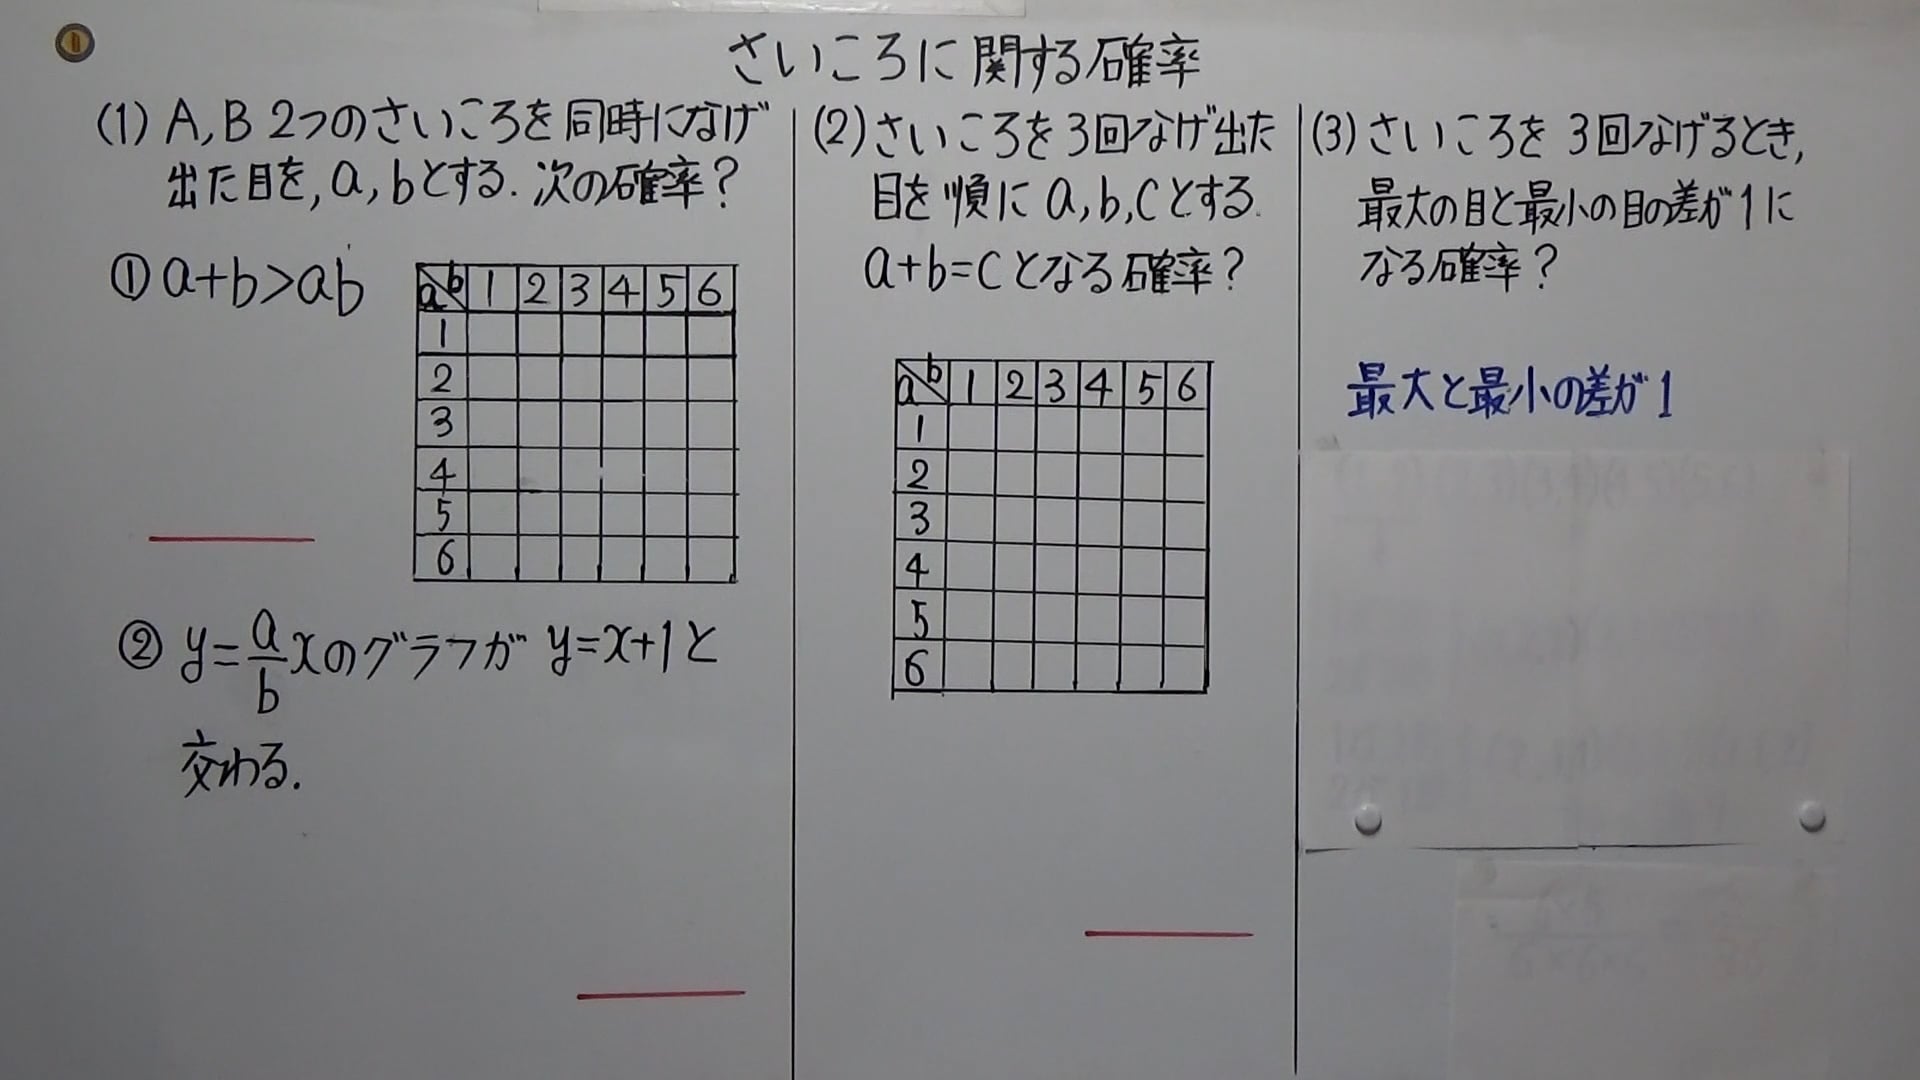 さいころに関する確率
(1) A,B 2つのさいころを同時になげ
出た目を,a,bとする.次の確率?
①a+b>ab
b
a
1 2 3 4 5 6
1
2
3
4
5
6
② y=a/b xのグラフが y=x+1と
交わる.
(2)さいころを3回なげ出た
目を順に a,b,cとする.
a+b=cとなる確率?
b
a
1 2 3 4 5 6
1
2
3
4
5
6
(3)さいころを 3回なげるとき,
最大の目と最小の目の差が1に
なる確率?
最大と最小の差が1